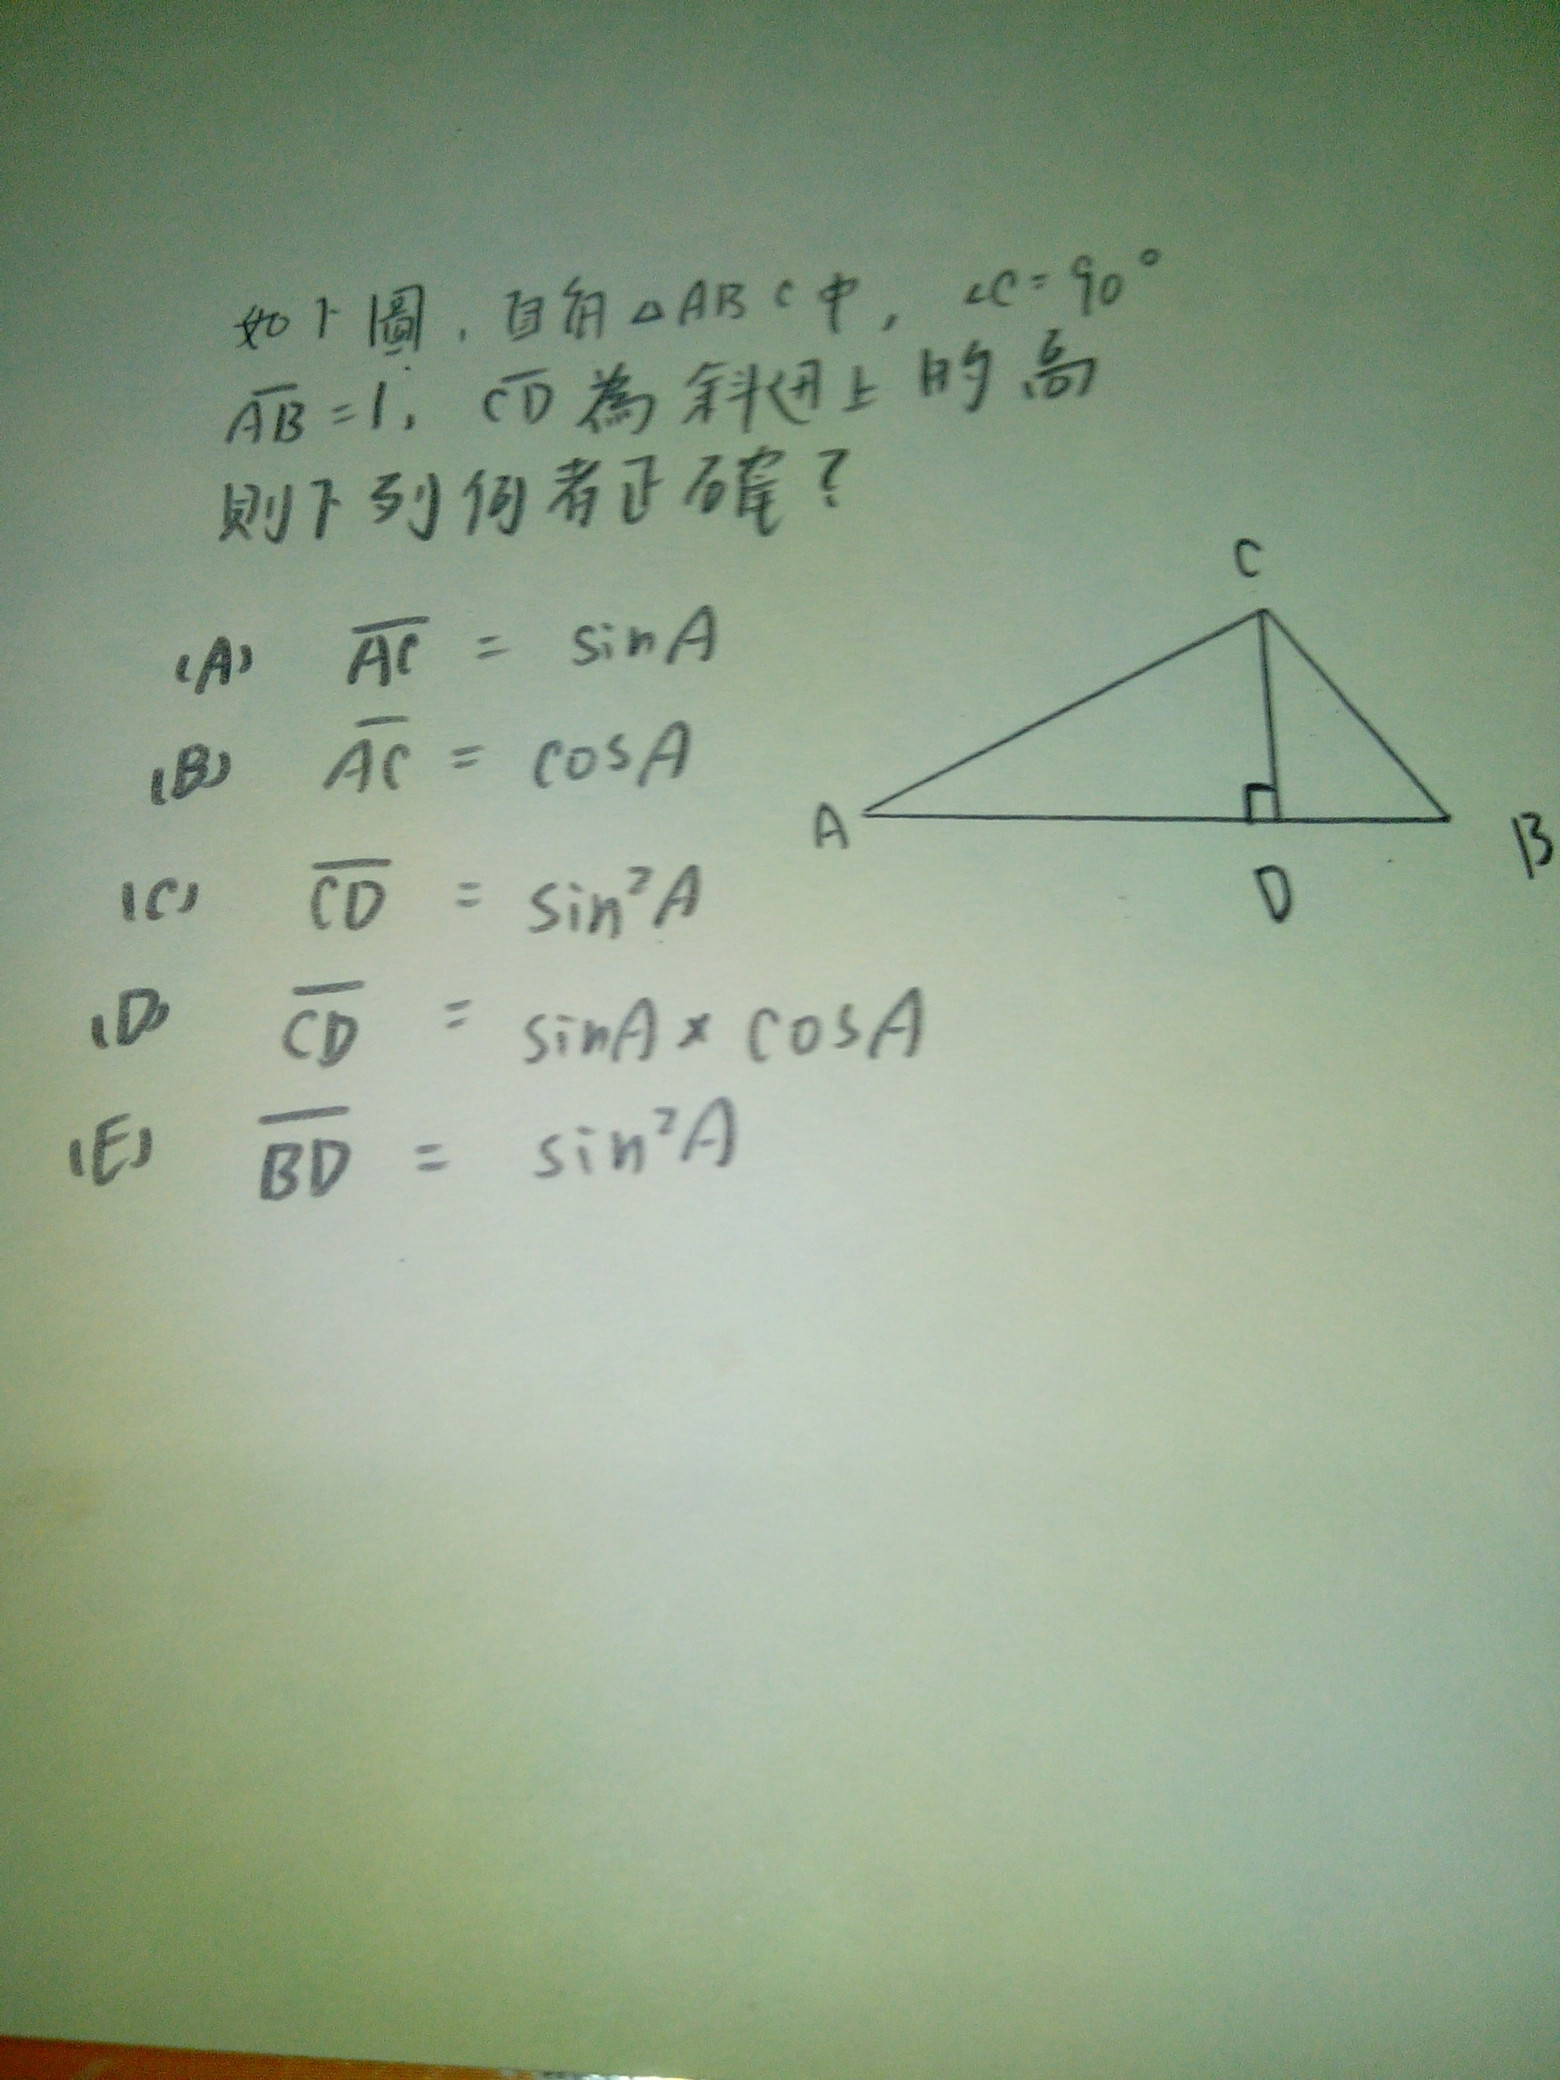 如下圖，直角△ABC中，∠C=90°
AB=1，CD為斜边上的高
則下列何者正確？
(A) AC = sinA
(B) AC = cosA
(C) CD = sin²A
(D) CD = sinA × cosA
(E) BD = sin²A
C
A
B
D